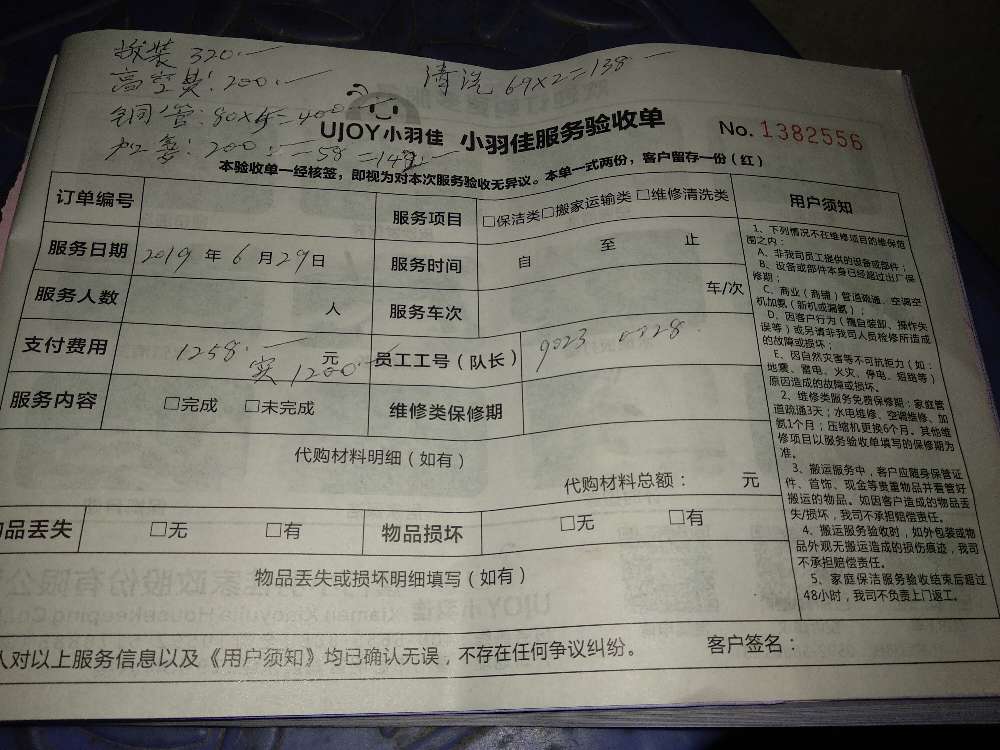 拆装 320.
清洗 69×2=138
高空费:200.
铜管:80×5=400
加氨:200.-58=142
UJOY小羽佳 小羽佳服务验收单
No. 1382556
本验收单一经核签，即视为对本次服务验收无异议。本单一式两份，客户留存一份（红）
订单编号 服务项目 □保洁类□搬家运输类 □维修清洗类
服务日期 2019 年 6 月 29 日 服务时间 自 至 止
服务人数 人 服务车次 车/次
支付费用 1258. 元 员工工号（队长） 9023 0828.
实 1200.
服务内容 □完成 □未完成 维修类保修期
代购材料明细（如有）
代购材料总额： 元
物品丢失 □无 □有 物品损坏 □无 □有
物品丢失或损坏明细填写（如有）
人对以上服务信息以及《用户须知》均已确认无误，不存在任何争议纠纷。 客户签名：
用户须知
1、下列情况不在维修项目的维保范
围之内：
A、非我司员工提供的设备或部件；
B、设备或部件本身已经超过出厂保
修期；
C、商业（商铺）管道疏通、空调空
机加氨（新机或漏氨）；
D、因客户行为（擅自装卸、操作失
误等）或另请非我司人员检修所造成
的故障或损坏；
E、因自然灾害等不可抗拒力（如：
地震、雷电、火灾、停电、短路等）
原因造成的故障或损坏。
2、维修类服务免费保修期：家庭管
道疏通3天；水电维修、空调维修、加
氨1个月；压缩机更换6个月。其他维
修项目以服务验收单填写的保修期为
准。
3、搬运服务中，客户应随身保管证
件、首饰、现金等贵重物品并看管好
搬运的物品。如因客户造成的物品丢
失/损坏，我司不承担赔偿责任。
4、搬运服务验收时，如外包装或物
品外观无搬运造成的损伤痕迹，我司
不承担赔偿责任。
5、家庭保洁服务验收结束后超过
48小时，我司不负责上门返工。